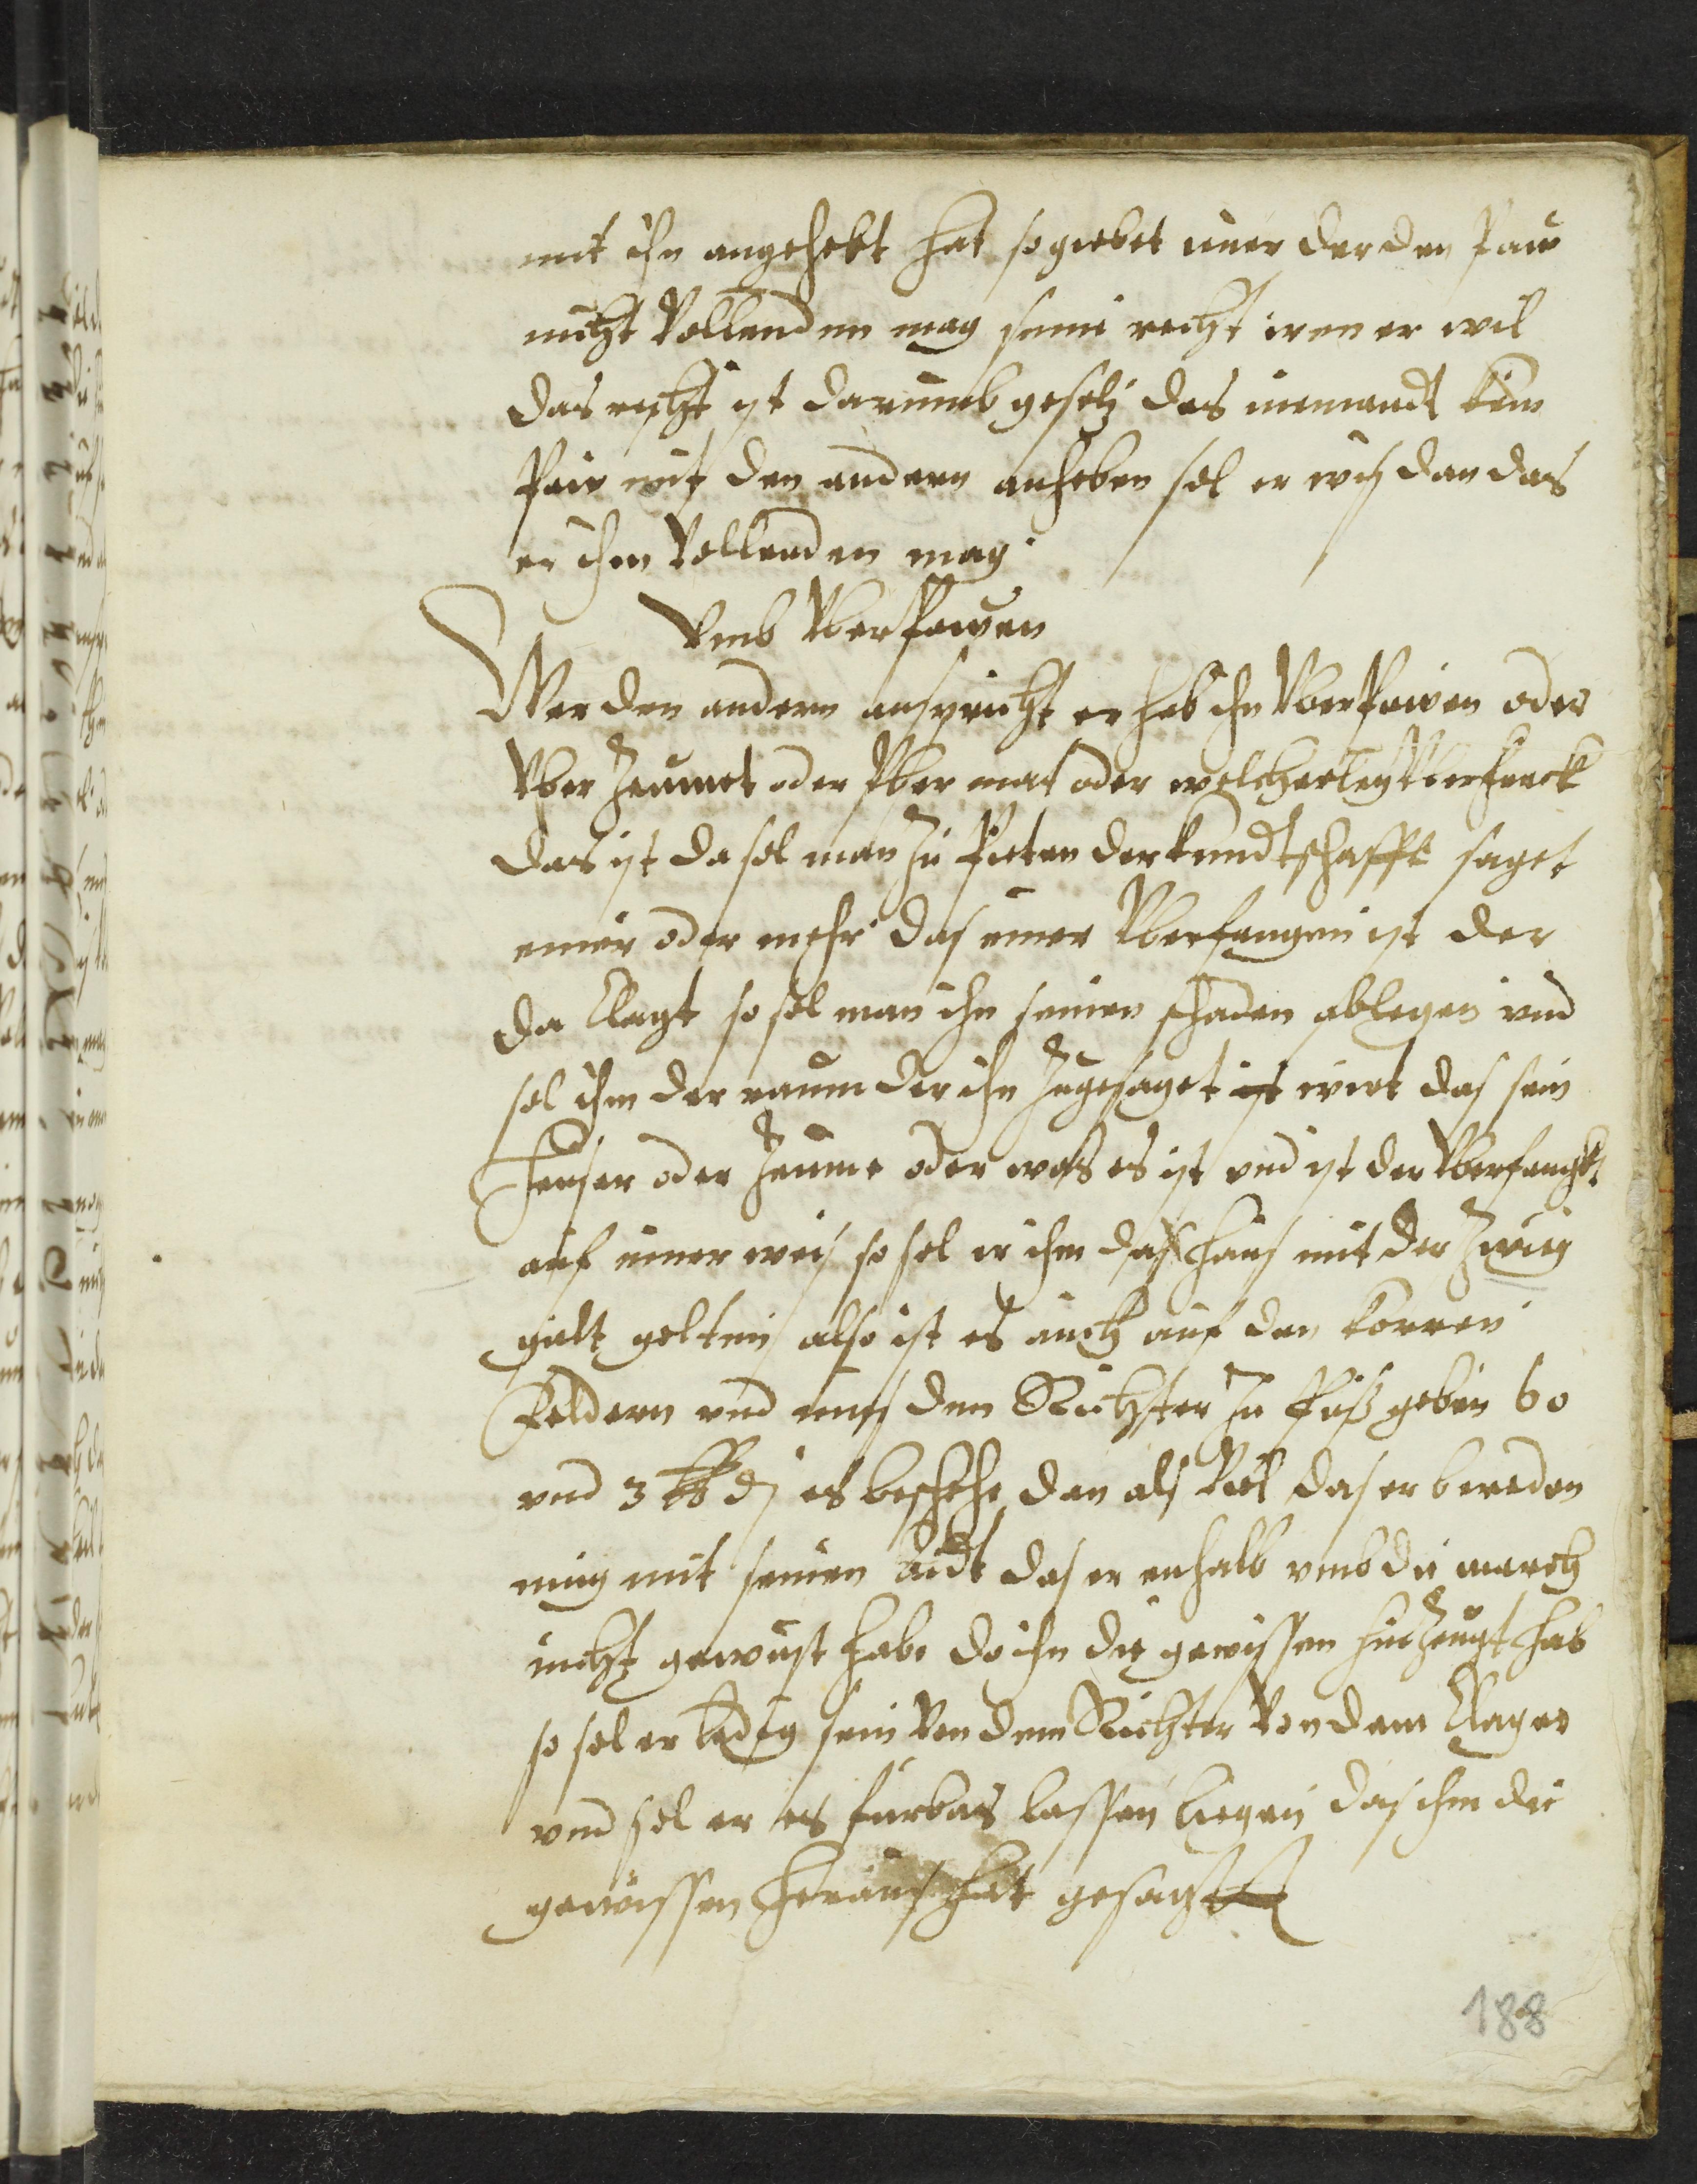 mit ihn angehebt hat so giebet einer der den Paw
nicht Vollenden mag seine recht wem er wil
das recht ist darumb gesetz das niemandt kein
Paw mit den andern anheben sol er wis dan das
er ihm Vollenden mag.
Vmb Vberpawen
Wer den andern anspricht er hab ihn Vberpawen oder
Vber Zeumet oder Vber met oder welcherley Vberfanck
das ist da sol man Zu Pieten der kundtschafft saget
einer oder mehr das einer Vberfangen ist der
da klagt so sol man ihn seinen schaden ablegen vnd
sol ihm der raum der ihn Zugesaget ist wirt das sein
heuser oder Zeune oder was es ist vnd ist der Vberfanckt
auf einer weis so sol er ihm das haus mit der Zwig
gült gelten also ist es auch auf den korren
feldern vnd mus dem Richter Zu Pus geben 60
vnd 3 lb d es beschehe dan als Viel das er bereden
mug mit seinen Aidt das er enhalb vmb die march
nicht gewust habe do ihn die gewissen hin Zeugt hab
so sol er ledig sein Von dem Richter Von dem klager
vnd sol er es fürbas lassen ligen das ihm die
gewissen heraus hat gesagt
188